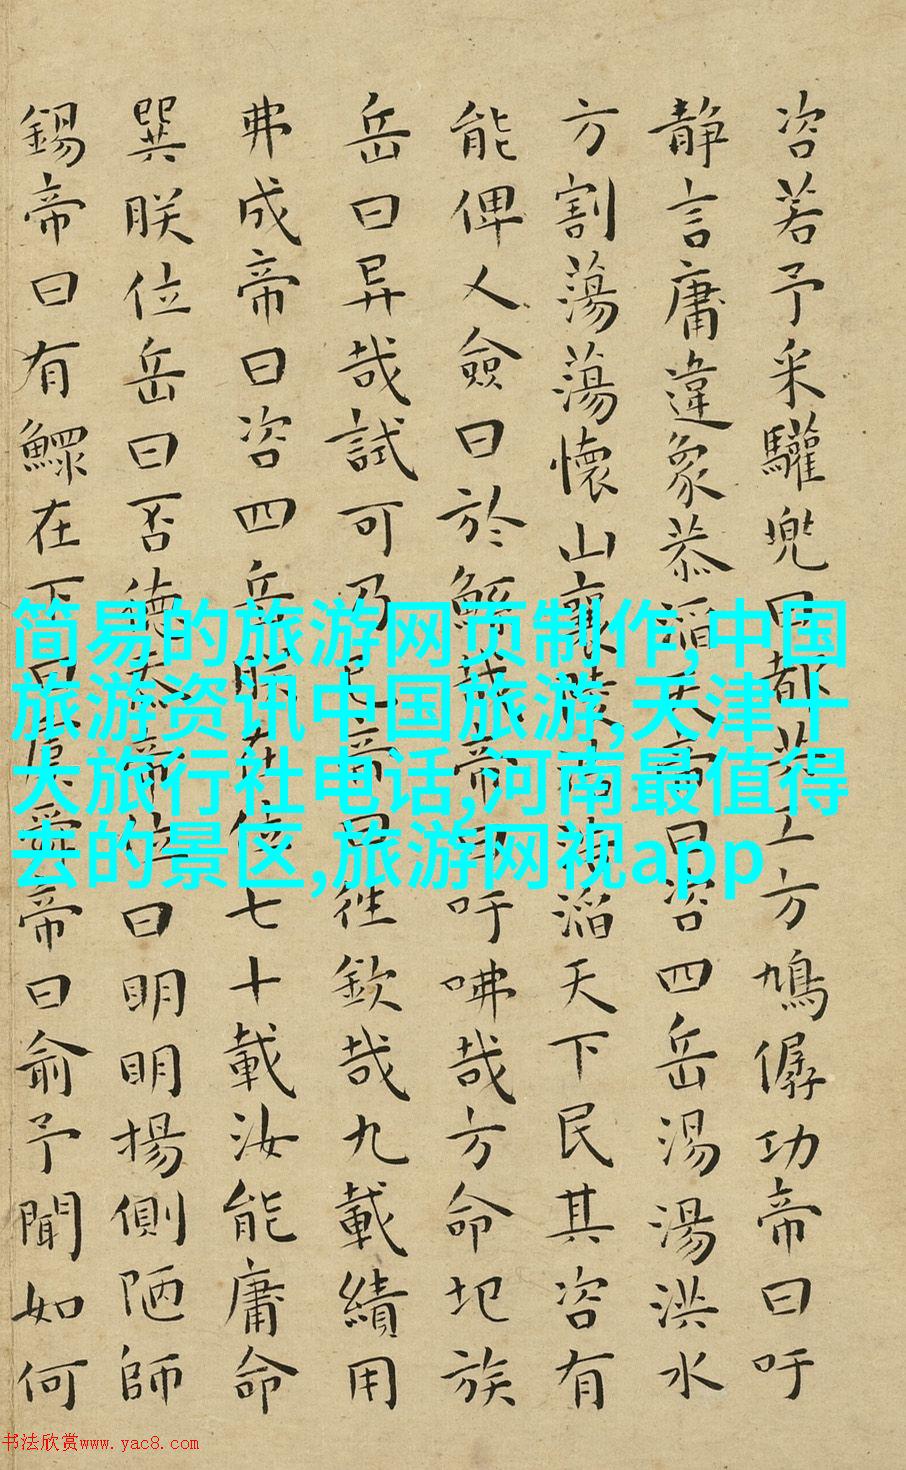 咨若予采驩兜曰都共工方鳩僝功帝曰吁
静言庸違象恭滔天帝曰咨四岳湯湯洪水
方割蕩蕩懷山襄陵浩浩滔天下民其咨有
能俾乂僉曰於鯀哉帝曰吁咈哉方命圮族
岳曰异哉試可乃已帝曰往欽哉九載績用
弗成帝曰咨四岳朕在位七十載汝能庸命
巽朕位岳曰否德忝帝位曰明明揚側陋師
錫帝曰有鰥在下曰虞舜帝曰俞予聞如何
简易的旅游网页制作,中国
旅游资讯中国旅游,天津十
大旅行社电话,河南最值得
去的景区,旅游网视app
书法欣赏www.yac8.com